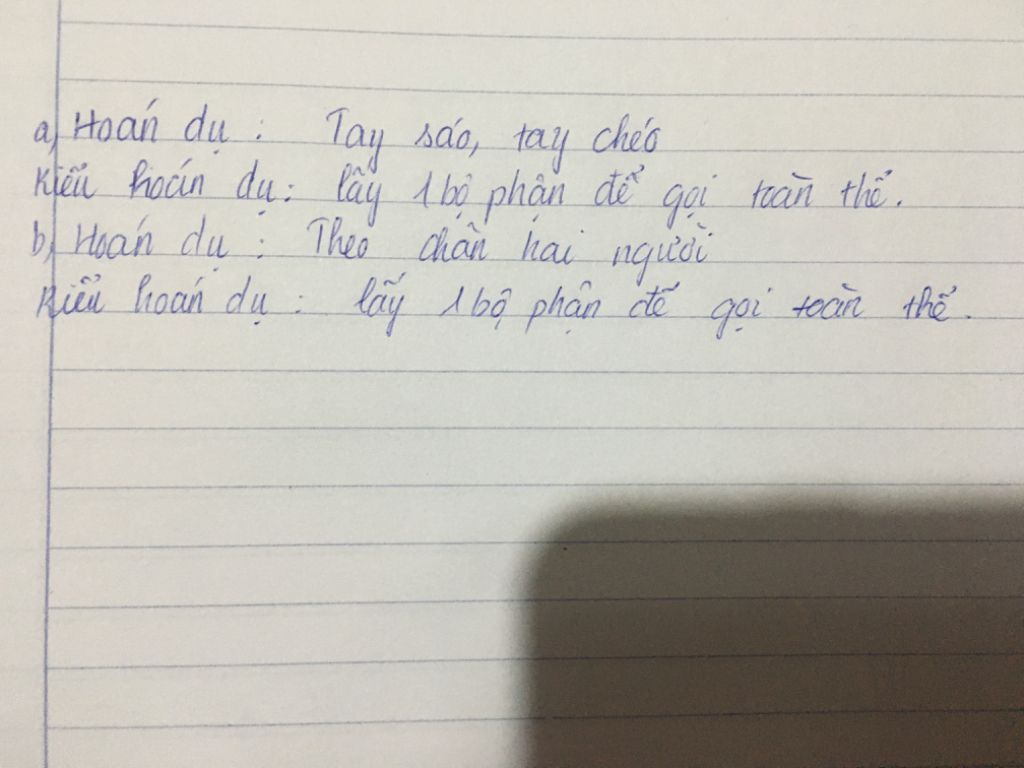 a, Hoán dụ : Tay sáo, tay chéo
Kiểu hoán dụ : lấy 1 bộ phận để gọi toàn thể.
b, Hoán dụ : Theo chân hai người
Kiểu hoán dụ : lấy 1 bộ phận để gọi toàn thể.